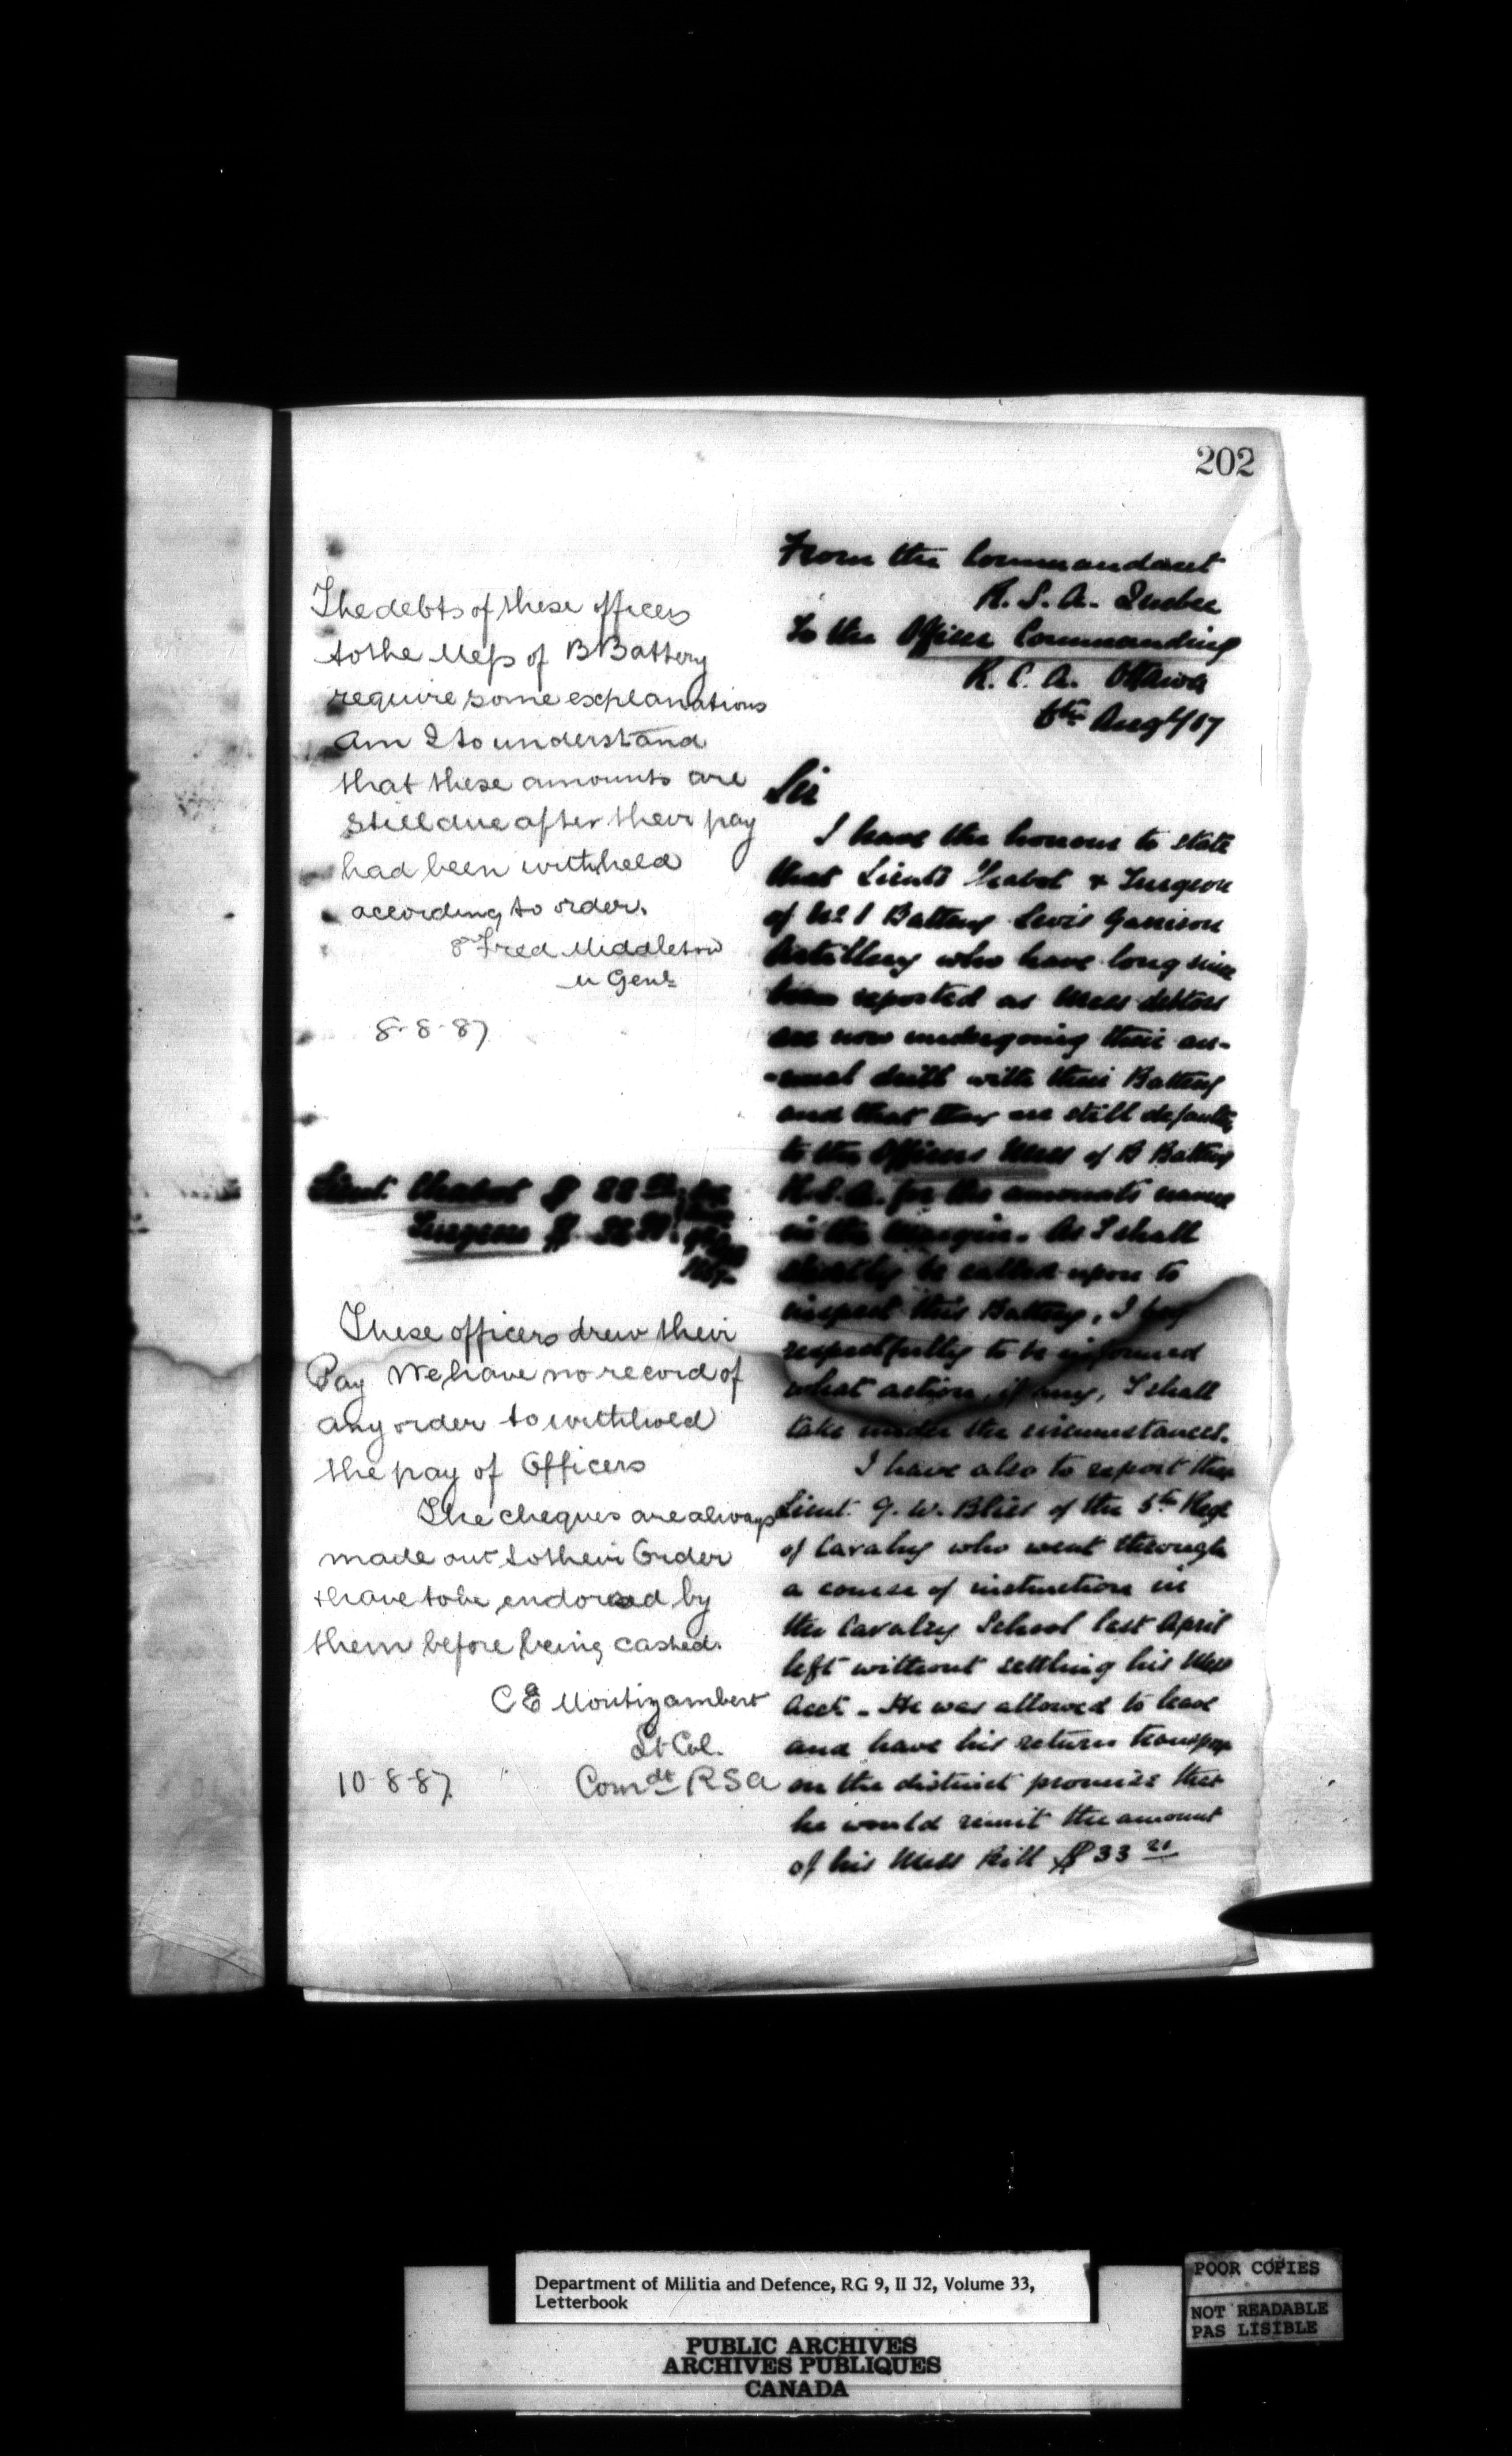 202
The debts of these officers
to the Mess of B Battery
require some explanations
Am I to understand
that these amounts are
still due after their pay
had been withheld
according to order.
Fred Middleton
M Genl
8-8-87
Lieut. Chabot $ 22
Surgeon $
These officers drew their
Pay We have no record of
any order to withhold
the pay of Officers
The cheques are always
made out to their Order
& have to be endorsed by
them before being cashed.
C E Montizambert
Lt Col.
10-8-87 Comdt R S A
From the Commandant
R. S. A. Quebec
To the Officer Commanding
R. C. A. Ottawa
6th Augt/87
Sir
I have the honour to state
that Lieuts Chabot & Surgeon
of No 1 Battery Levis Garrison
Artillery who have long since
been reported as Mess debtors
are now undergoing their an-
-nual drill with their Battery
and that they are still defaulters
to the Officers Mess of B Battery
R.S.A. for the amounts named
in the Margin. As I shall
shortly be called upon to
inspect this Battery, I beg
respectfully to be informed
what action, if any, I shall
take under the circumstances.
I have also to report that
Lieut. G. W. Bliss of the 5th Regt
of Cavalry who went through
a course of instruction in
the Cavalry School last April
left without settling his Mess
Acct - He was allowed to leave
and have his return
on the distinct promise that
he would remit the amount
of his Mess Bill $ 33 21
Department of Militia and Defence, RG 9, II J2, Volume 33,
Letterbook
PUBLIC ARCHIVES
ARCHIVES PUBLIQUES
CANADA
POOR COPIES
NOT READABLE
PAS LISIBLE